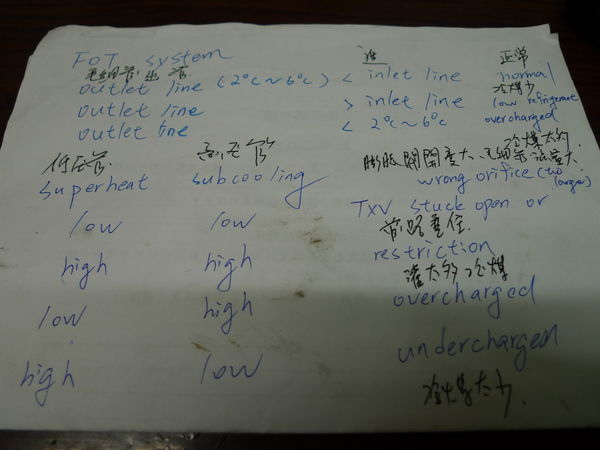 FOT system 進 正常
毛細管出管
outlet line (2°c~6°c) < inlet line normal
冷煤少
outlet line > inlet line low refrigerant
outlet line < 2°c~6°c overcharged
冷煤太多
低压管 高压管 膨脹閥開度太 毛細管 太
superheat subcooling wrong orifice (two larger)
low low TXV stuck open or
管路塞住
high high restriction
灌太多冷煤
low high overcharged
high low undercharged
冷煤太少